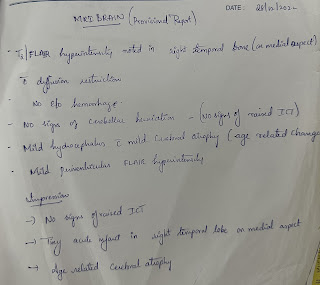 DATE: 28/12/2022
MRI BRAIN (Provisional Report)
- T2/FLAIR hyperintensity noted in right temporal bone (on medial aspect)
c̄ diffusion restriction
- No e/o hemorrhage.
- No signs of cerebellar herniation - (No signs of raised ICT)
- Mild hydrocephalus c̄ mild Cerebral atrophy (age related change
- Mild periventricular FLAIR hyperintensity
Impression
→ No signs of raised ICT
→ Tiny acute infarct in right temporal lobe on medial aspect
→ Age related Cerebral atrophy